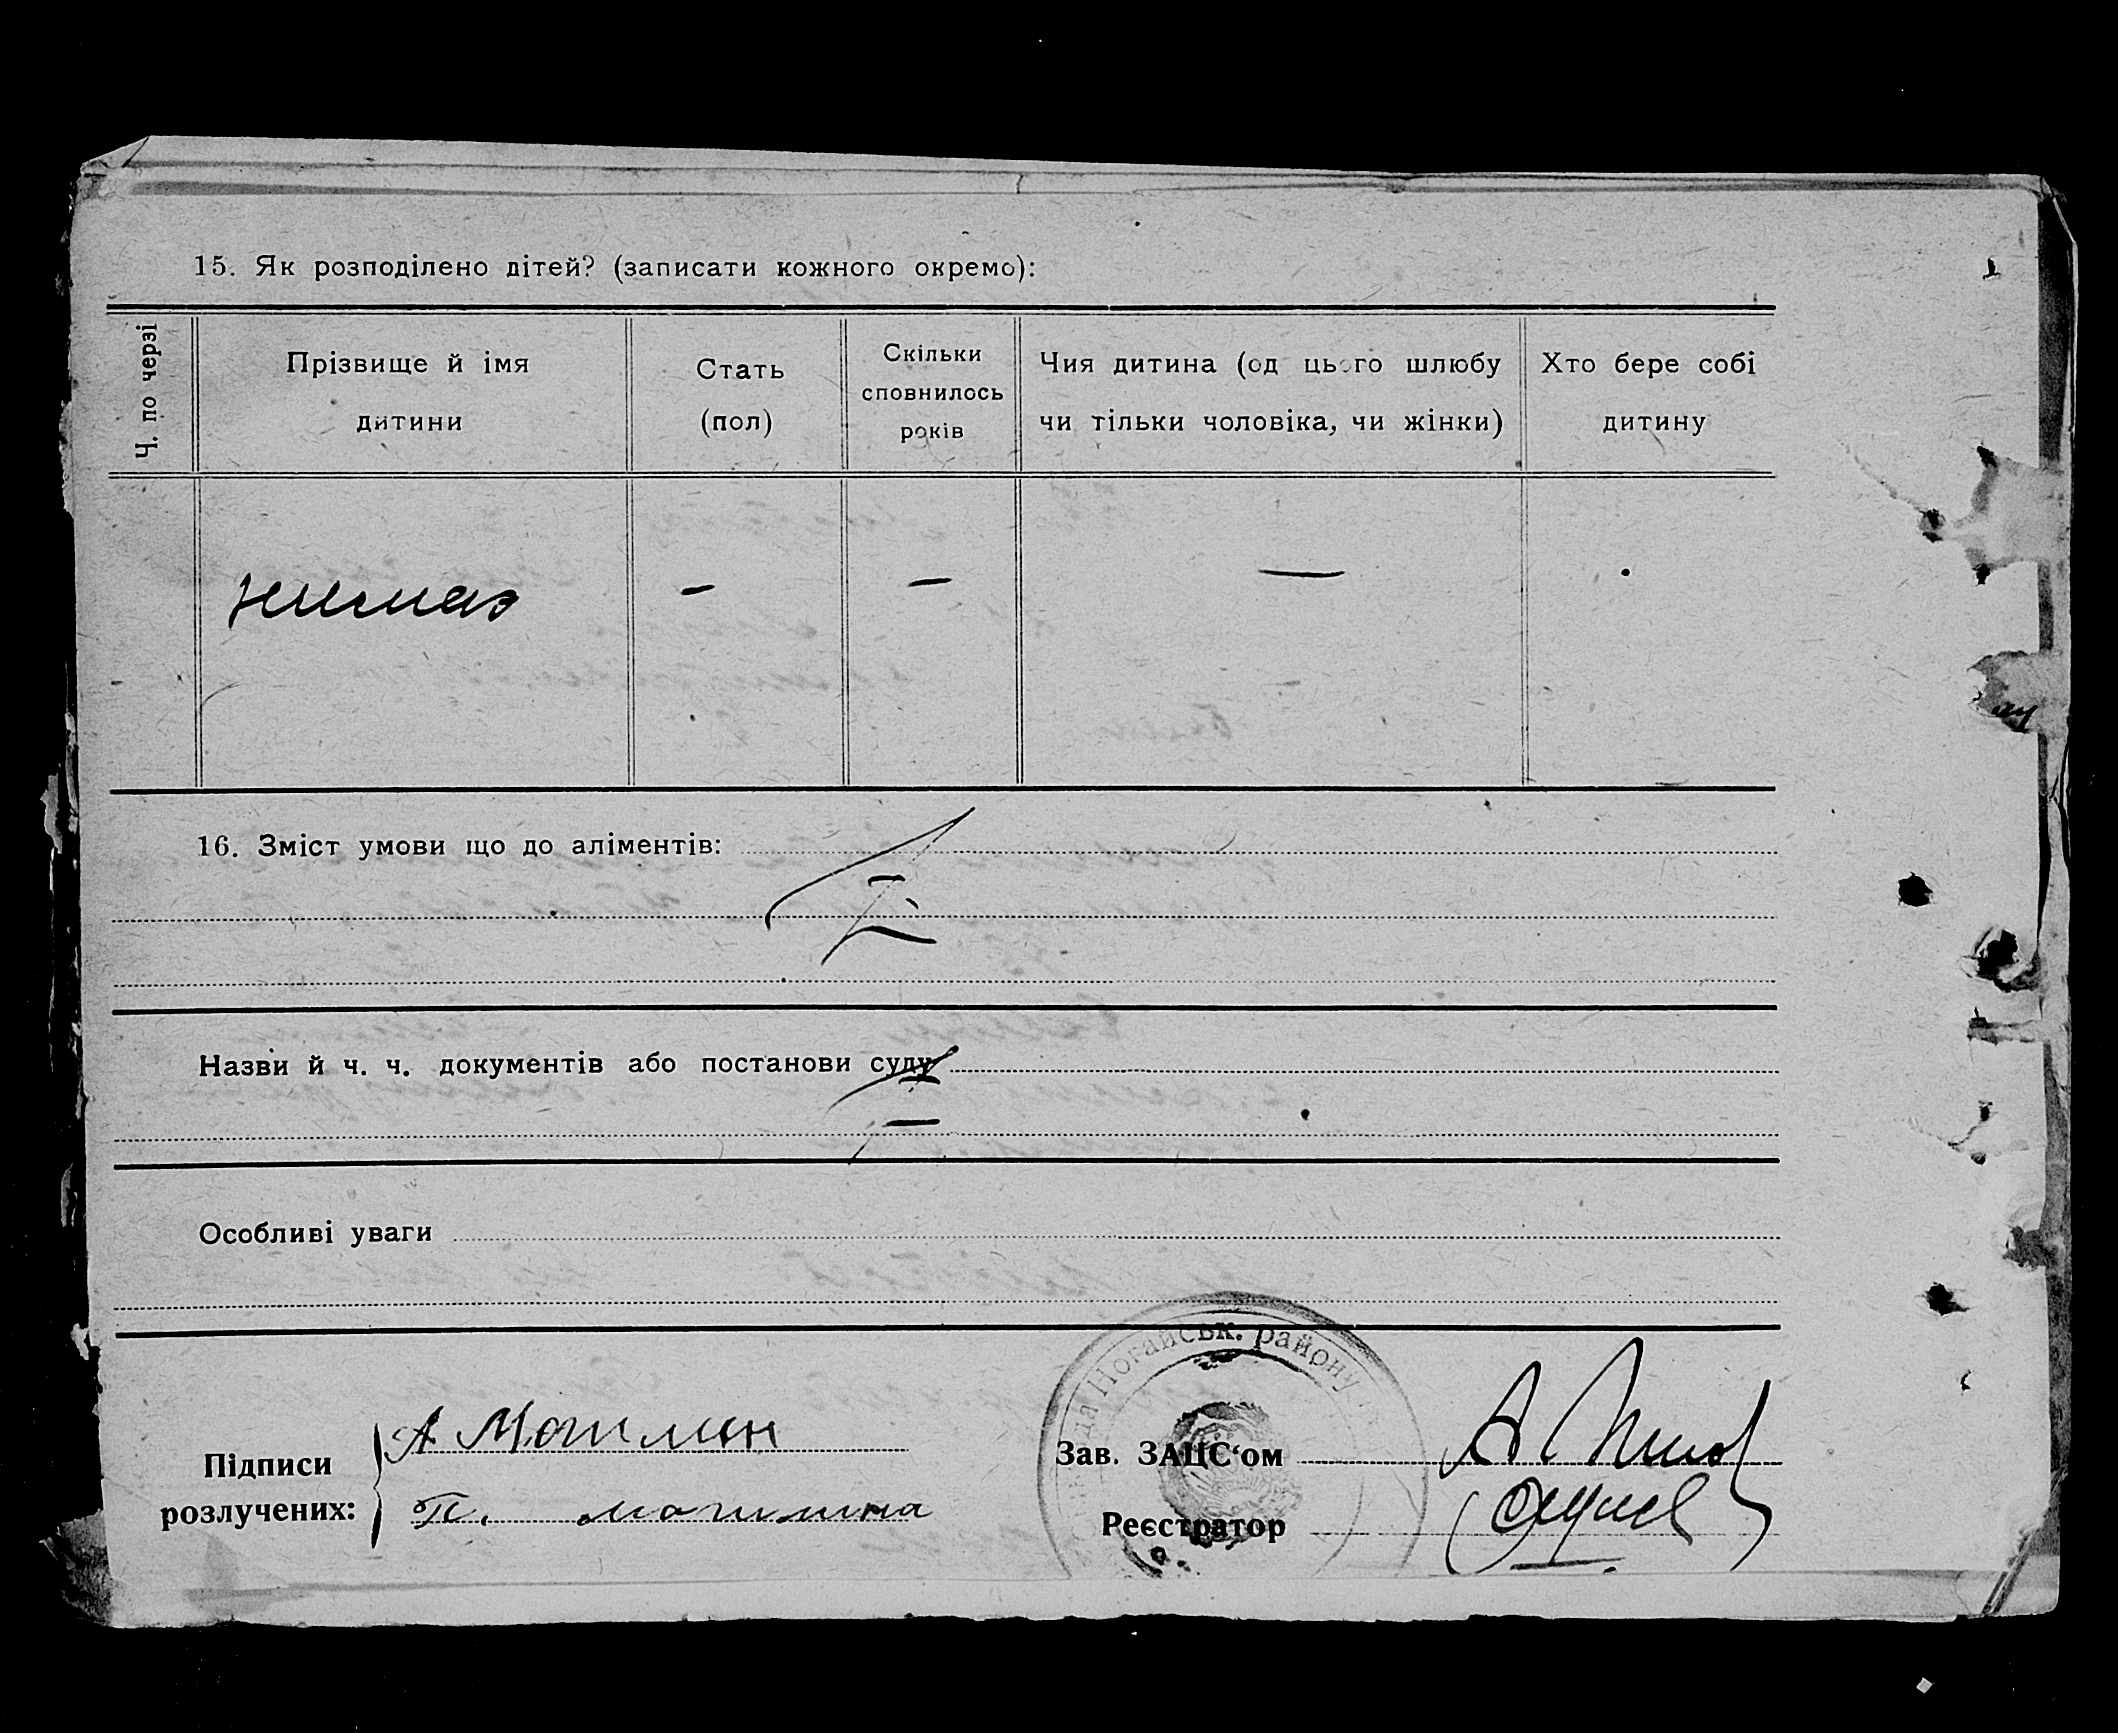 15. Як розподілено дітей? (записати кожного окремо):
Ч. по черзі
Прізвище й імя
дитини
Стать
(пол)
Скільки
сповнилось
років
Чия дитина (од цього шлюбу
чи тільки чоловіка, чи жінки)
Хто бере собі
дитину
немає – – —
16. Зміст умови що до аліментів:
Назви й ч. ч. документів або постанови суду
Особливі уваги
Ногайськ. району
Підписи
розлучених:
А
П.
Зав. ЗАЦС‘ом
Реєстратор